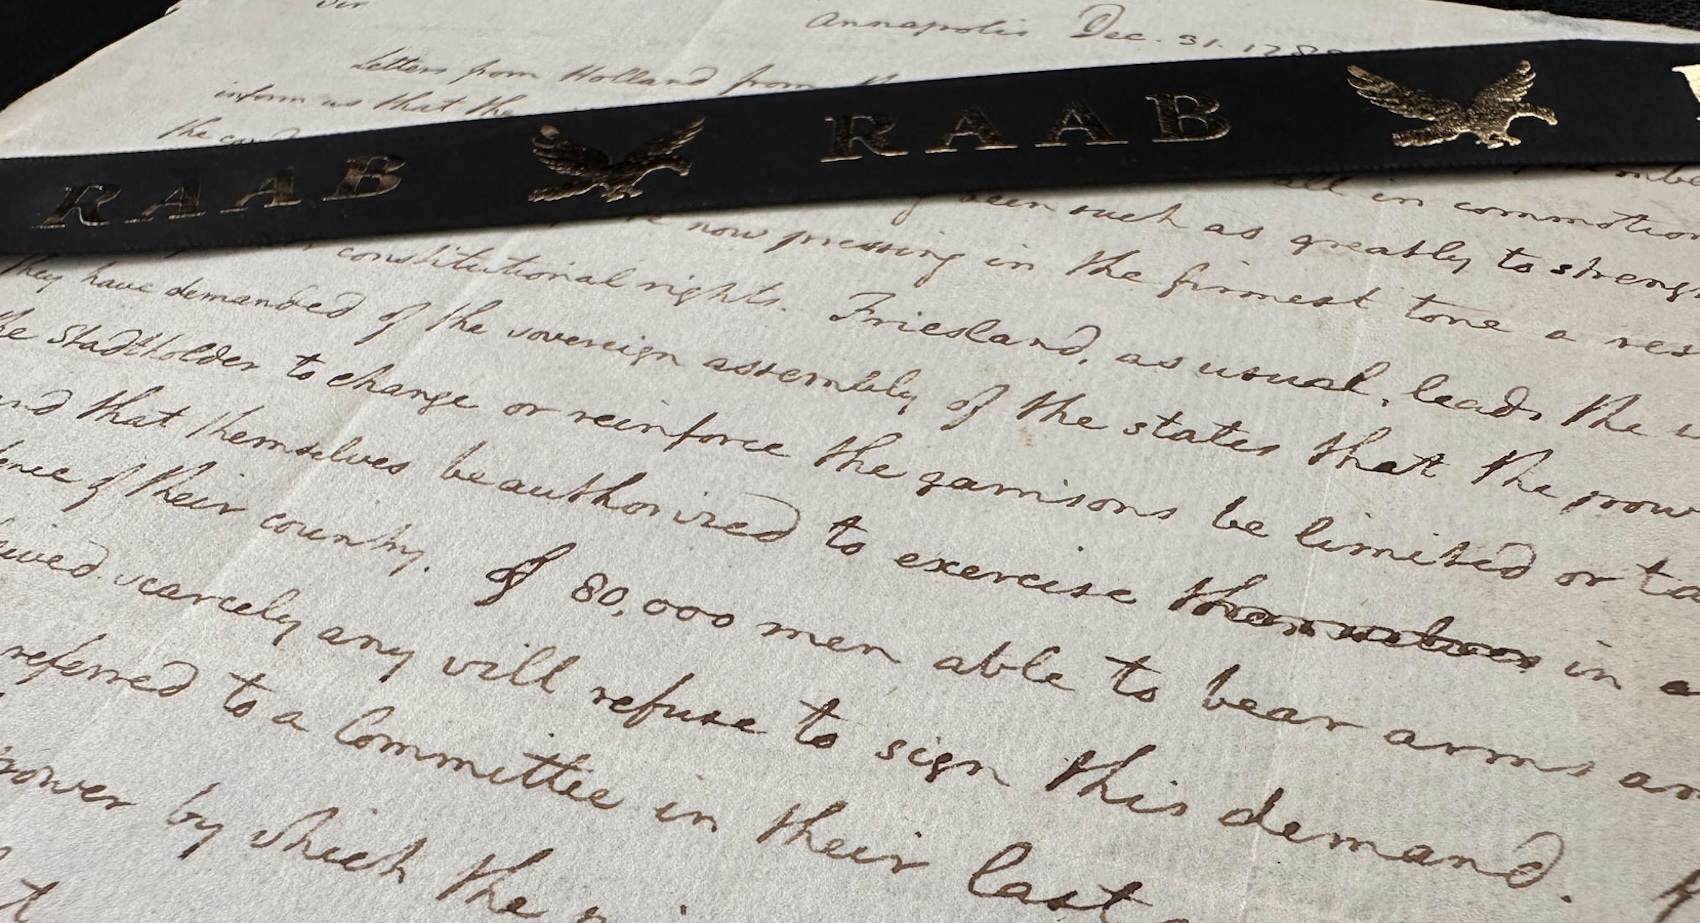 Sir
Annapolis Dec. 31. 178
Letters from Holland from th
inform us that the
the
RAAB RAAB
all in commotion
been such as greatly to streng
now pressing in the firmest tone a res
constitutional rights. Friesland, as usual, leads the w
They have demanded of the sovereign assembly of the states that the pow
the Stadtholder to change or reinforce the garrisons be limited or ta
and that themselves be authorized to exercise in
ence of their country. Of 80,000 men able to bear arms am
scarcely any will refuse to sign this demand.
referred to a Committee in their last
power by which the
t